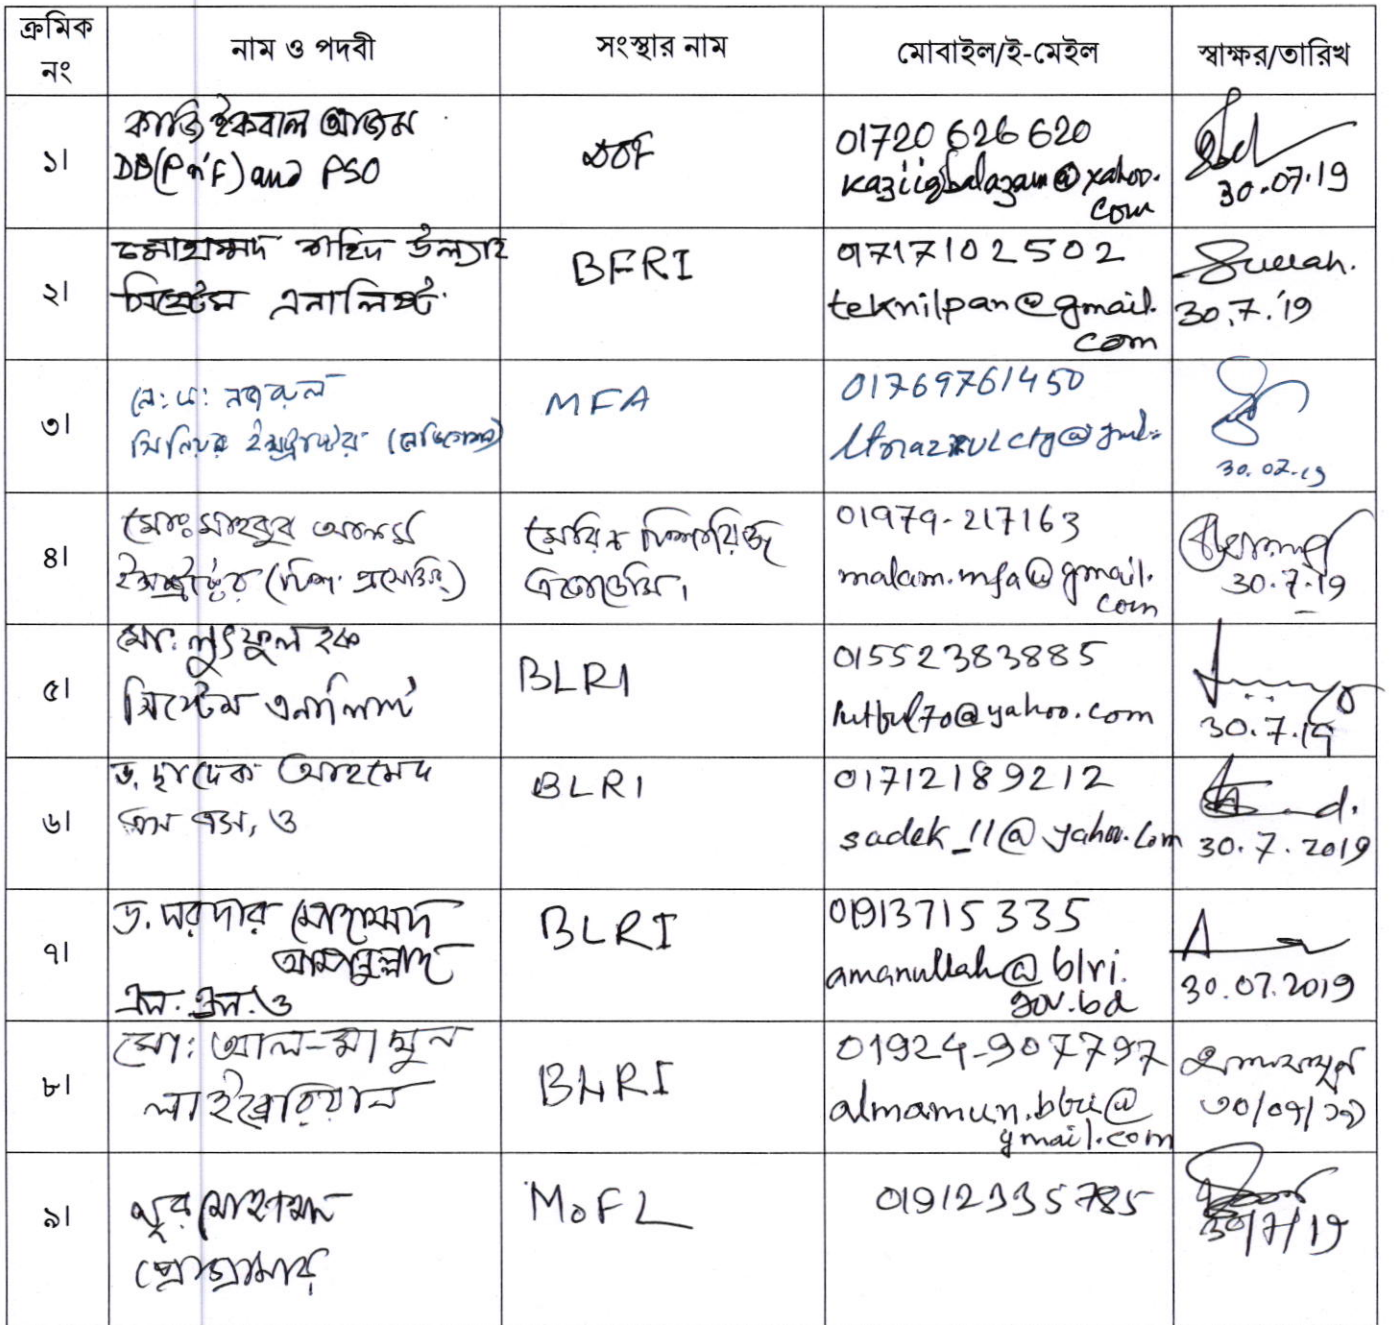 ক্রমিক নং
নাম ও পদবী
সংস্থার নাম
মোবাইল/ই-মেইল
স্বাক্ষর/তারিখ
১।
কাজি ইকবাল আজম
and PSO
DOF
01720 626 620
kaziiqbalazam@yahoo.
com
30.07.19
২।
মোহাম্মদ শহিদ উল্যাহ
সিস্টেম এনালিস্ট
BFRI
01717102502
teknilpan@gmail.
com
30.7.'19
৩।
লে: ম: নজরুল
সিনিয়র ইন্সট্রাক্টর (নেভিগেশন)
MFA
01769761450
30.07.19
৪।
মোঃ মাহবুব আলম
ইন্সট্রাক্টর (ফিশ প্রসেসিং)
মেরিন ফিশারিজ
একাডেমি।
01979-217163
malam.mfa@gmail.
com
30.7.19
৫।
মো: লুৎফুল হক
সিস্টেম এনালিস্ট
BLRI
01552383885
lutful70@yahoo.com
30.7.19
৬।
ড. ছাদেক আহমেদ
এস, ও
BLRI
01712189212
sadek_11@yahoo.com
30.7.2019
৭।
ড. সরদার মোহাম্মদ
আমানুল্লাহ
এস.এস.ও
BLRI
01913715335
amanullah@blri.
gov.bd
30.07.2019
৮।
মো: আল-মামুন
লাইব্রেরিয়ান
BLRI
01924-907797
almamun.blri@
gmail.com
৩০/০৭/১৯
৯।
নূর মোহাম্মদ
প্রোগ্রামার
MoFL
01912335785
30/7/19